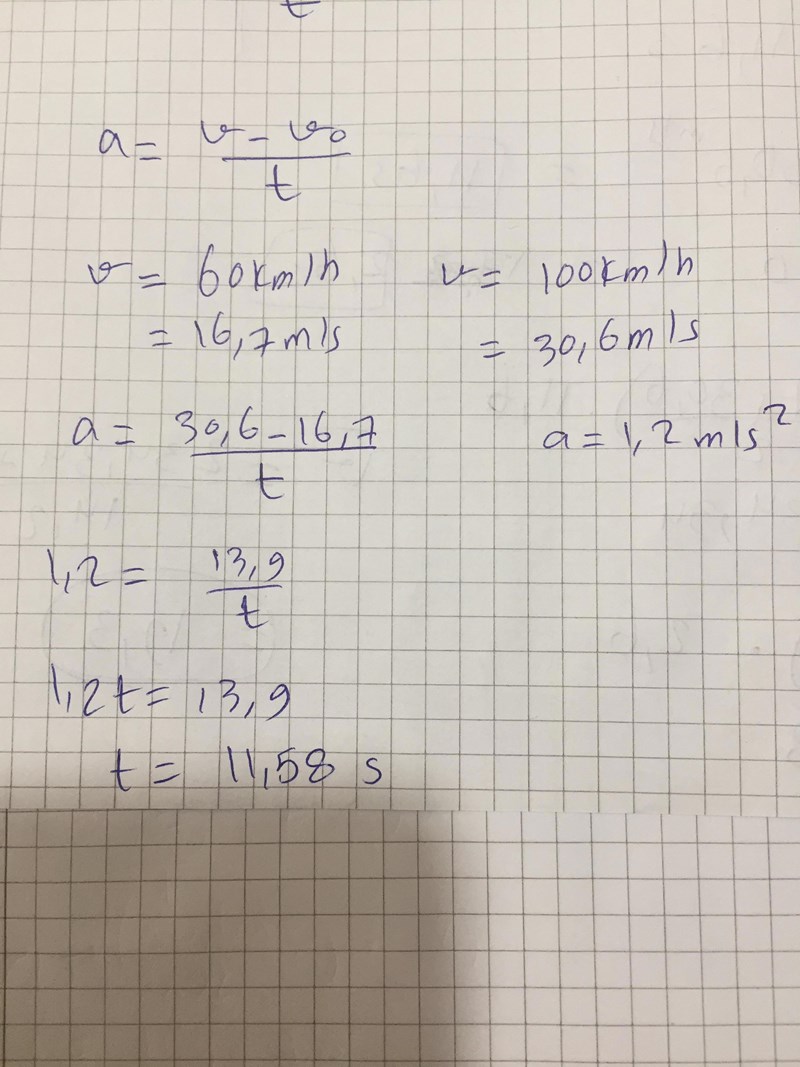 t
a = v - v₀ / t
v = 60 km/h v = 100 km/h
= 16,7 m/s = 30,6 m/s
a = 30,6 - 16,7 / t a = 1,2 m/s²
1,2 = 13,9 / t
1,2t = 13,9
t = 11,58 s